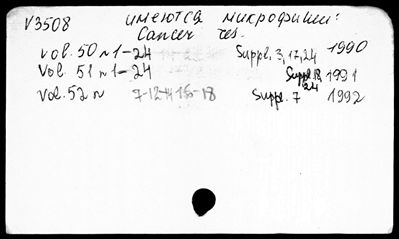 V3508 имеются микрофиши:
Cancer res.
vol. 50 n 1-24 Suppl. 3, 17, 24 1990
Vol. 51 n 1-24 Suppl. 18, 24 1991
vol. 52 n 7-12 18 Suppl. 7 1992